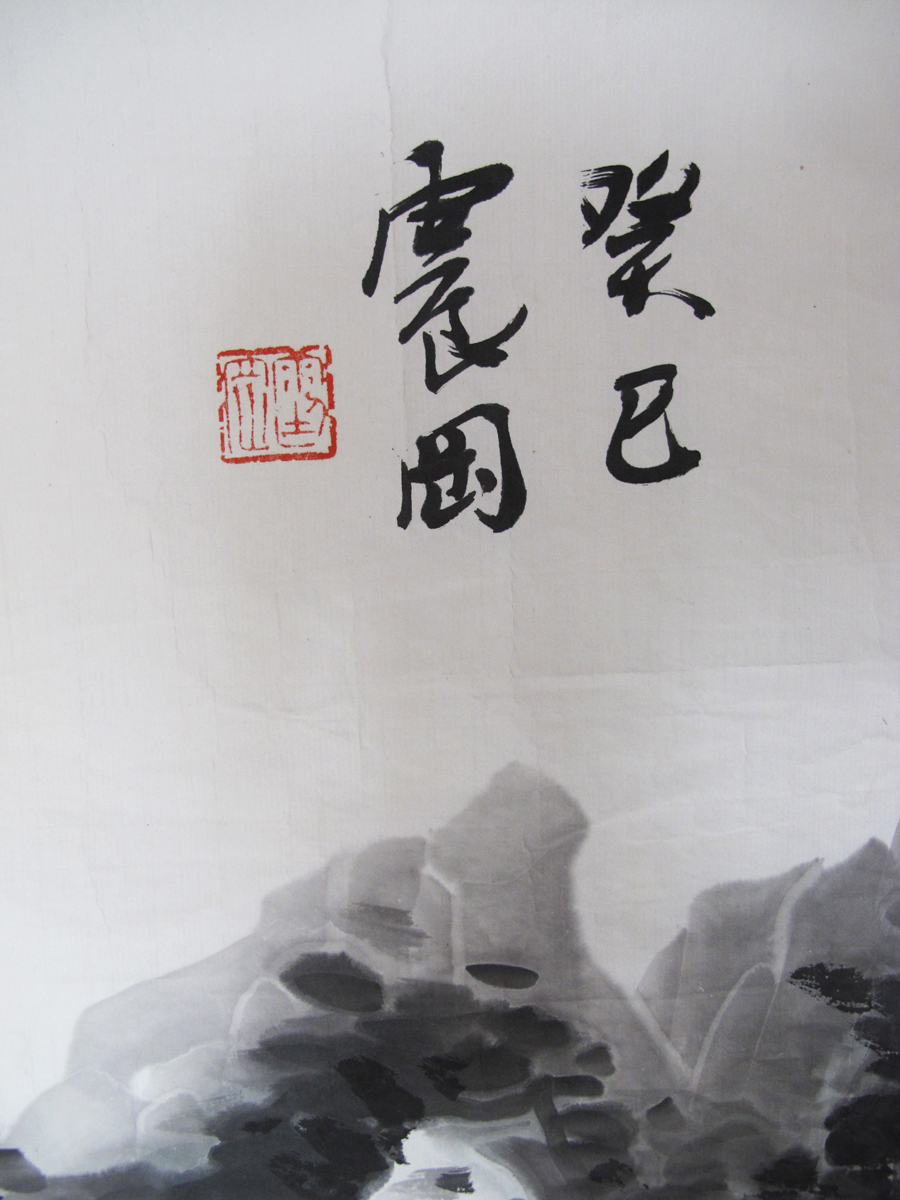 癸巳
震岡